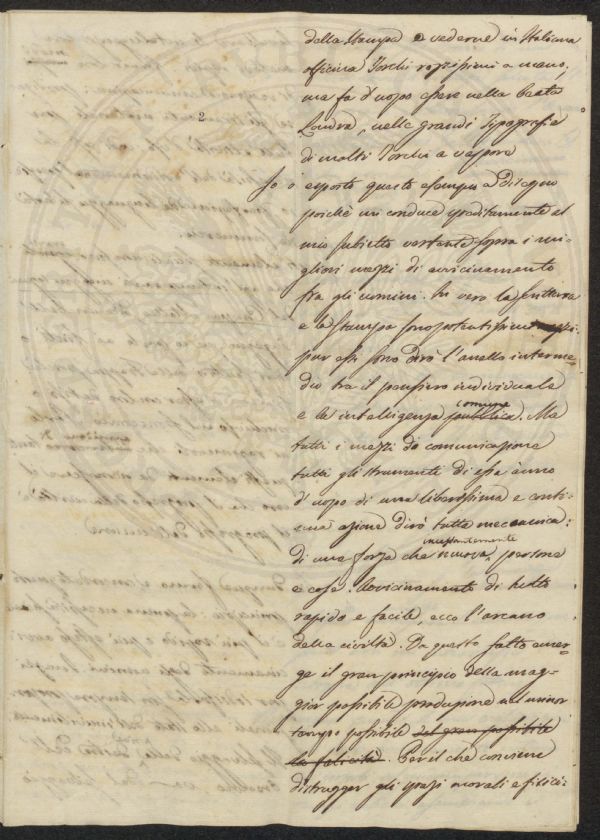 della Stampa e vederne in Italiana
officina Torchi rozzissimi a mano,
ma fa d'uopo essere nella beata
2
Londra, nelle grandi Tipografie
di molti Torchi a vapore
Io ò esposto questo esempio a Disegno
poichè mi conduce ipoditamente al
mio subietto vertente sopra i mi-
gliori mezzi di avvicinamento
fra gli uomini. In vero la scrittura
e la Stampa son potentissimi mezzi
pur essi sono dirò l'anello interme-
dio tra il pensiero individuale
comune
e la intelligenza pubblica. Ma
tutti i mezzi di comunicazione
tutti gli strumenti di essa ànno
d'uopo di una liberissima e conti-
nua azione dirò tutta meccanica:
incessantemente
di una forza che muova, persone
e cose. Avvicinamento di tutto
rapido e facile, ecco l'arcano
della civiltà. Da questo fatto emer-
ge il gran principio della mag-
gior possibile produzione nel minor
tempo possibile del gran possibile
la felicità. Per il che conviene
distrugger gli spazi morali e fisici: